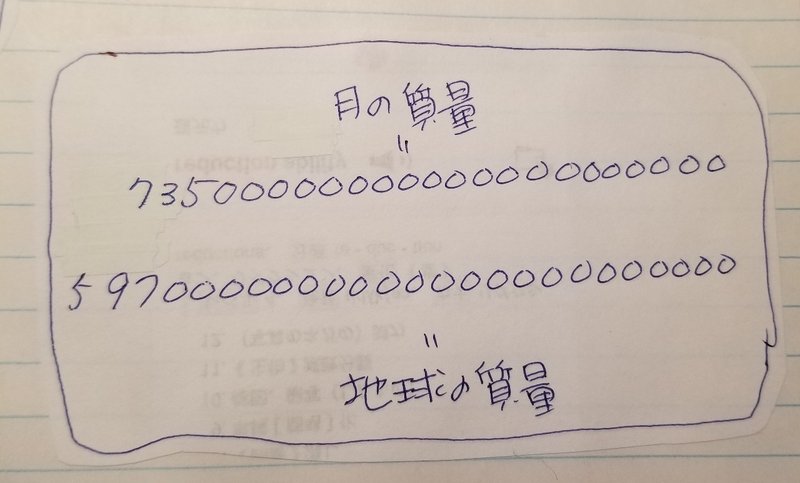 月の質量
〃
73500000000000000000000
5970000000000000000000000
〃
地球の質量